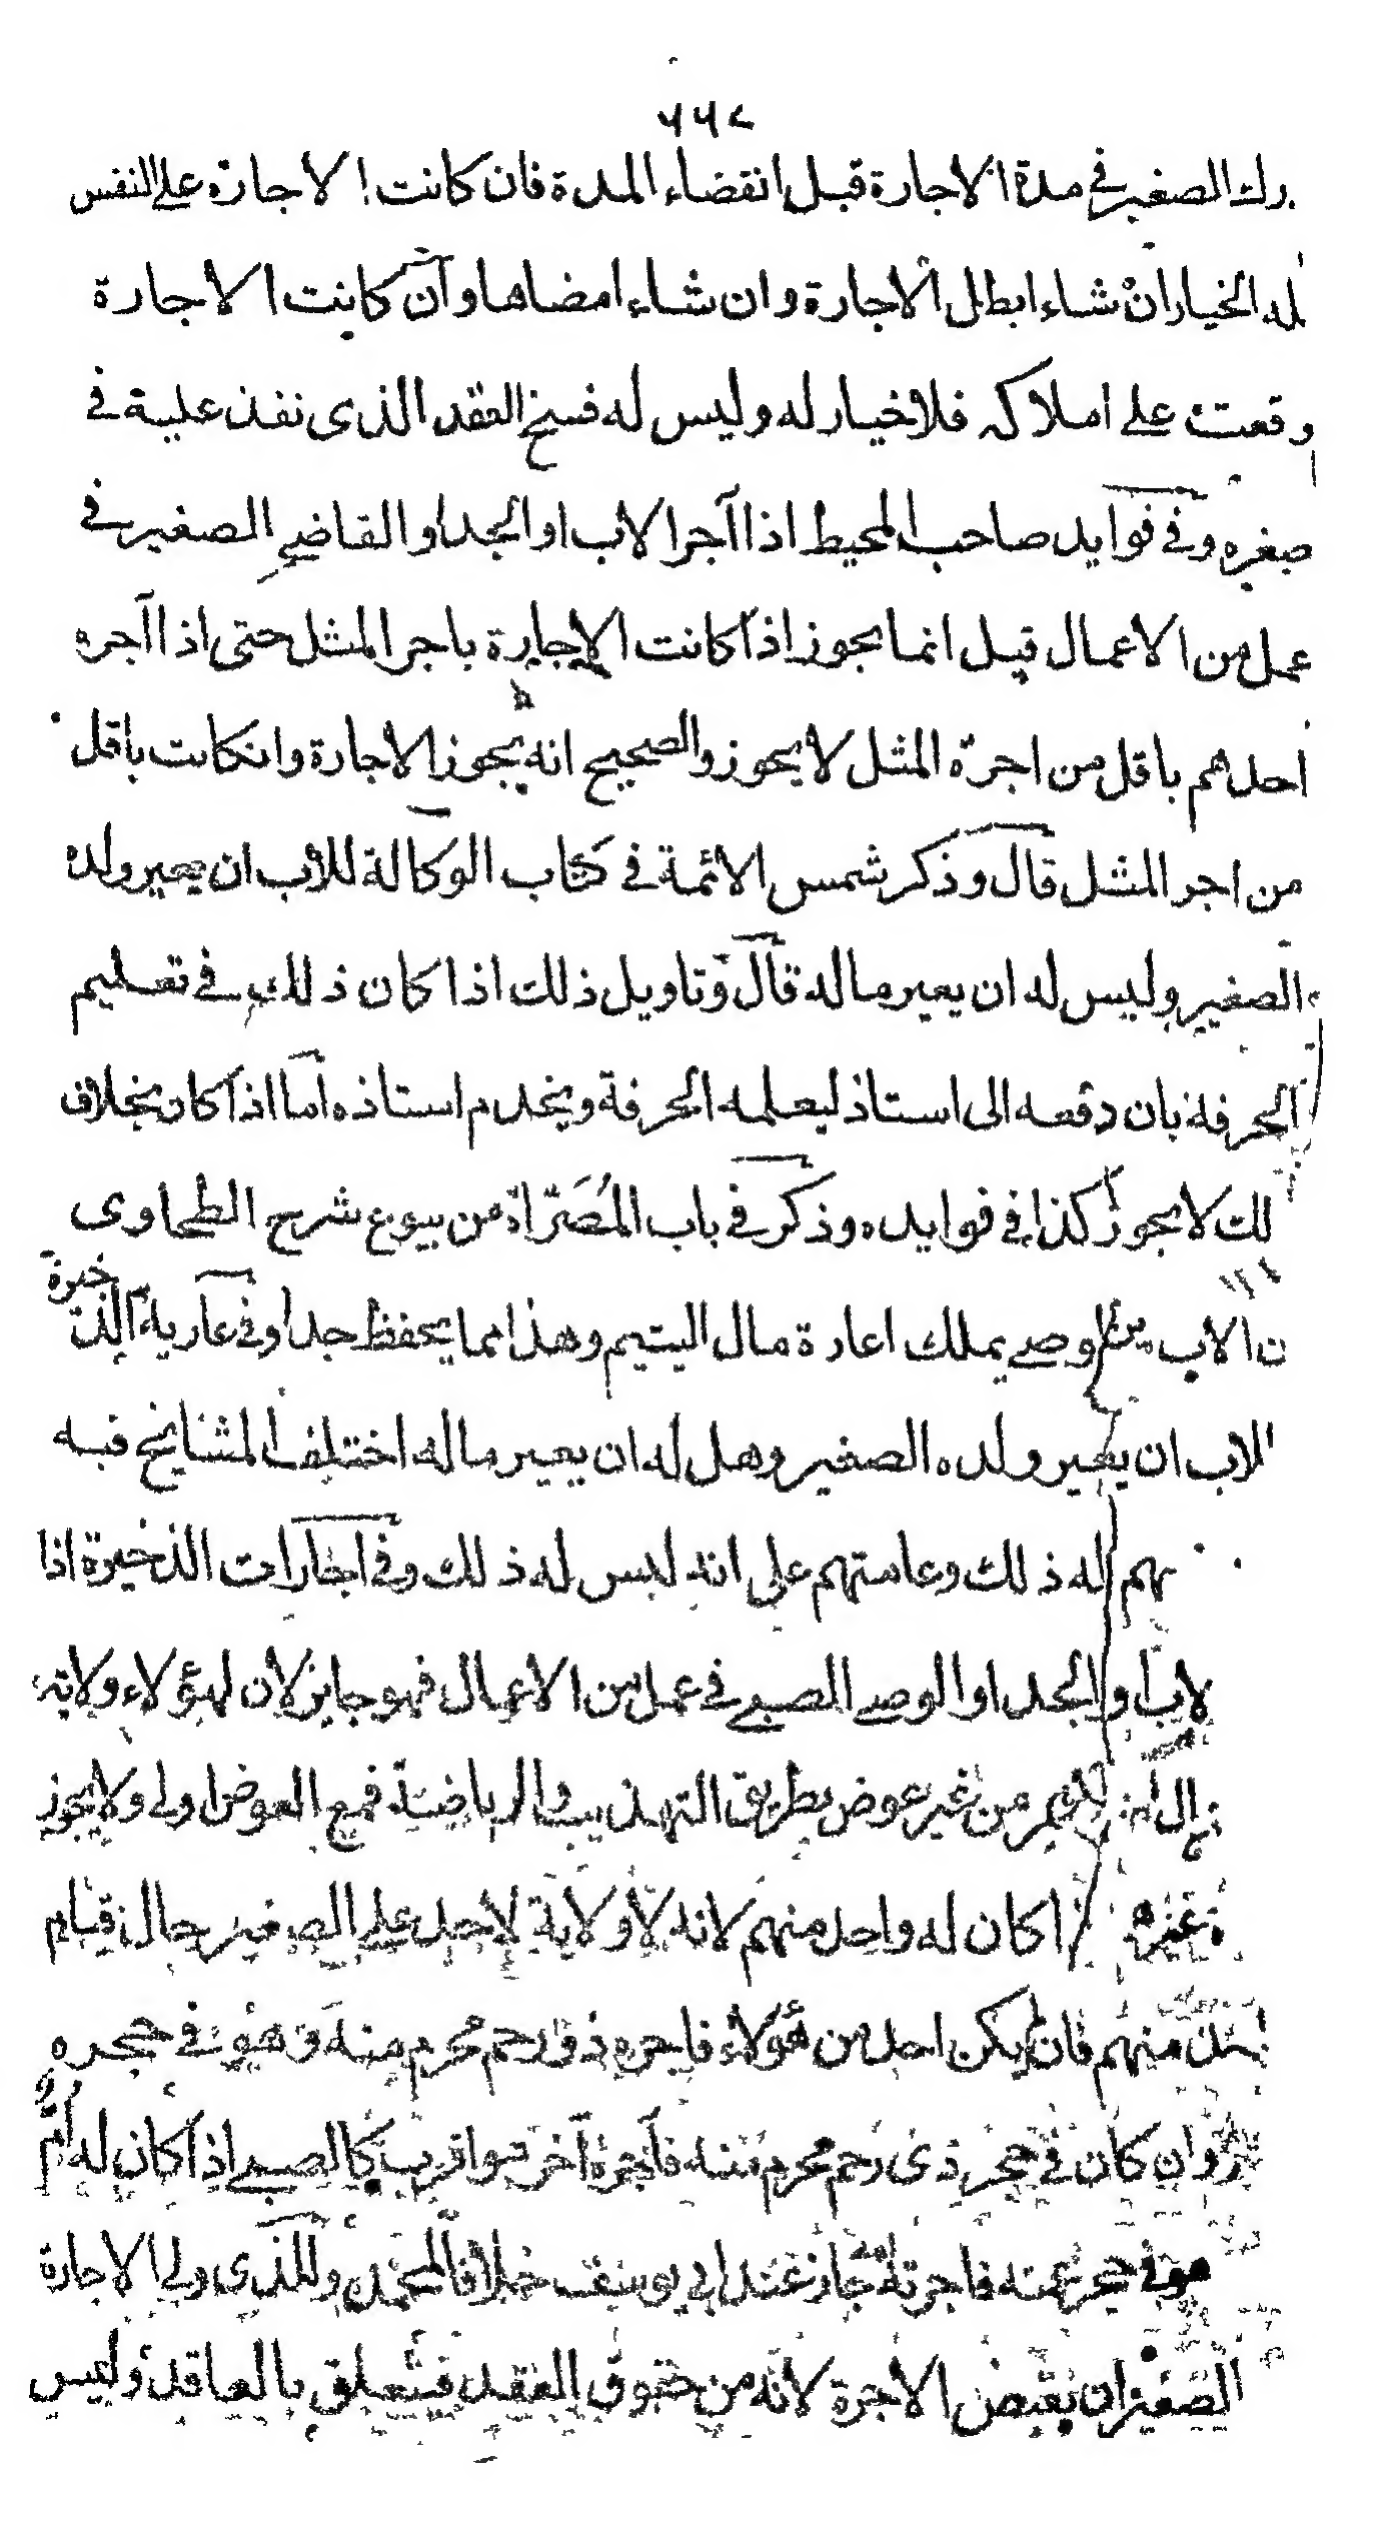 ٦٦٨
درك الصغير في مدة الاجارة قبل انقضاء المدة فان كانت الاجارة على النفس
له الخيار ان شاء ابطل الاجارة وان شاء امضاها وان كانت الاجارة
وقعت على املاكه فلا خيار له وليس له فسخ العقد الذى نفذ عليه في
صغره وفي فوايد صاحب المحيط اذا آجر الاب او الجد او القاضي الصغير في
عمل من الاعمال قيل انما يجوز اذا كانت الاجارة باجر المثل حتى اذا آجره
احدهم باقل من اجرة المثل لا يجوز والصحيح انه يجوز الاجارة وانكانت باقل
من اجر المثل قال وذكر شمس الائمة في كتاب الوكالة للاب ان يعير ولده
الصغير وليس له ان يعير ماله قال وتاويل ذلك اذا كان ذلك في تعليم
الحرفة بان دفعه الى استاذ ليعلمه الحرفة ويخدم استاذه اما اذا كان بخلاف
لك لا يجوز كذا في فوايده وذكر في باب المُصَرّاة من بيوع شرح الطحاوى
ن الاب من وصي يملك اعارة مال اليتيم وهذا مما يحفظ جدا وفي عارية الذخيرة
للاب ان يعير ولده الصغير وهل له ان يعير ماله اختلف المشايخ فيه
بهم له ذلك وعامتهم على انه ليس له ذلك وفي اجارات الذخيرة اذا
لاب او الجد او الوصي الصبي في عمل من الاعمال فهو جايز لان لهؤلاء ولاية
من غير عوض بطريق التهذيب والرياضة فمع العوض اولى ولا يجوز
غيره اذا كان له واحد منهم لانه لا ولاية لاحد على الصغير حال قيام
منهم فان لم يكن احد من هؤلاء فاجره ذو رحم محرم منه وهو في حجره
وان كان في حجر ذى رحم محرم منه فآجره آخر هو اقرب كالصبي اذا كان له اُمّ
هو في حجر عمته فاجرته امه جاز عند ابي يوسف خلافا لمحمد وللذى ولي الاجارة
الصغير ان يقبض الاجرة لانه من حقوق العقد فيتعلق بالعاقد وليس